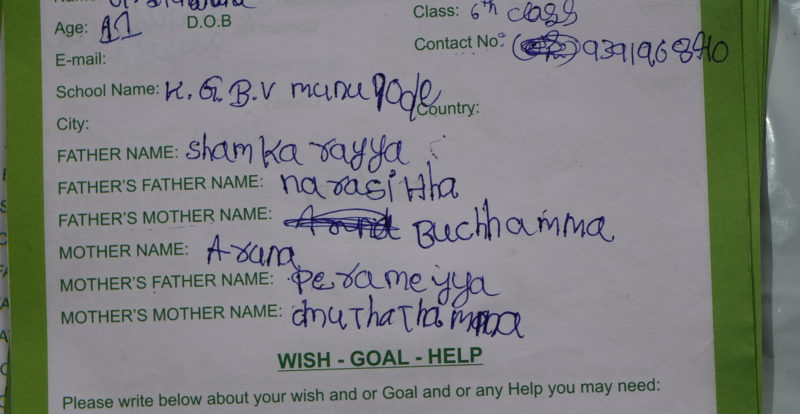 Class: 6th class
Age: 11 D.O.B
Contact No: 9391968940
E-mail:
School Name: K.G.B.V munugode
Country:
City:
FATHER NAME: shamka rayya
FATHER'S FATHER NAME: narasiHha
FATHER'S MOTHER NAME: Buchhamma
MOTHER NAME: Aruna
MOTHER'S FATHER NAME: perameyya
MOTHER'S MOTHER NAME:
WISH - GOAL - HELP
Please write below about your wish and or Goal and or any Help you may need: